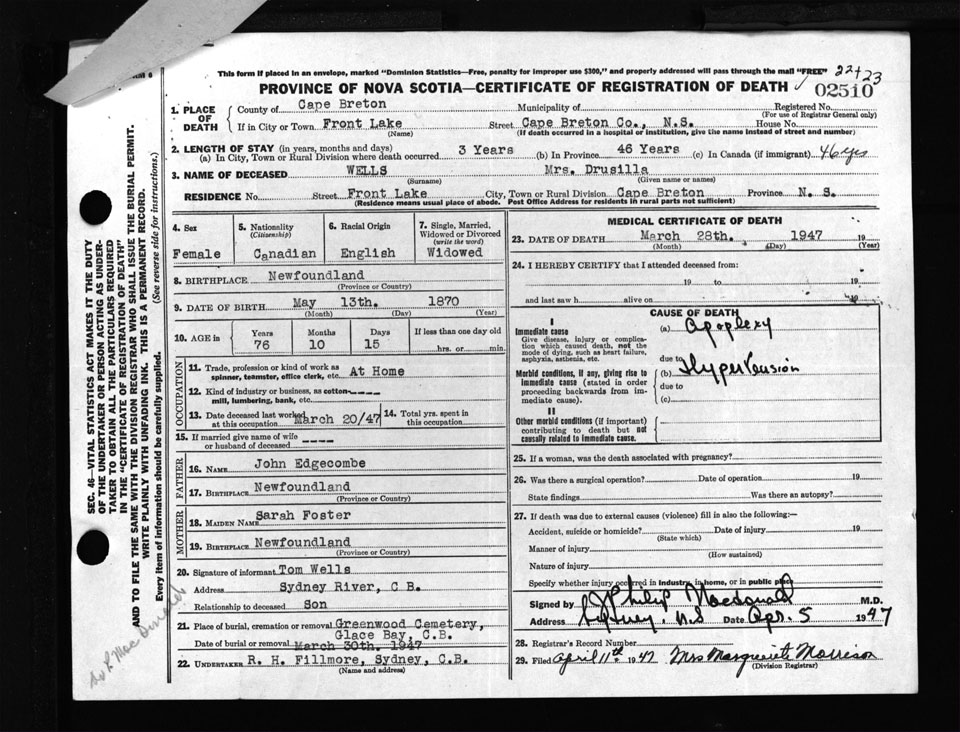 This form if placed in an envelope, marked "Dominion Statistics—Free, penalty for improper use $300," and properly addressed will pass through the mail "FREE"
PROVINCE OF NOVA SCOTIA—CERTIFICATE OF REGISTRATION OF DEATH
02510
1. PLACE OF DEATH
County of Cape Breton Municipality of Registered No.
(For use of Registrar General only)
If in City or Town Front Lake Street Cape Breton Co., N.S. House No.
(Name) (If death occurred in a hospital or institution, give the name instead of street and number)
2. LENGTH OF STAY (in years, months and days)
(a) In City, Town or Rural Division where death occurred 3 Years (b) In Province 46 Years (c) In Canada (if immigrant) 46 yrs
3. NAME OF DECEASED WELLS Mrs. Drusilla
(Surname) (Given name or names)
RESIDENCE No. Street Front Lake City, Town or Rural Division Cape Breton Province N. S.
(Residence means usual place of abode. Post Office Address for residents in rural parts not sufficient)
4. Sex
Female
5. Nationality
(Citizenship)
Canadian
6. Racial Origin
English
7. Single, Married, Widowed or Divorced
(write the word)
Widowed
8. BIRTHPLACE Newfoundland
(Province or Country)
9. DATE OF BIRTH May 13th. 1870
(Month) (Day) (Year)
10. AGE in
Years Months Days If less than one day old
76 10 15 hrs. or min.
OCCUPATION
11. Trade, profession or kind of work as spinner, teamster, office clerk, etc. At Home
12. Kind of industry or business, as cotton mill, lumbering, bank, etc. ----
13. Date deceased last worked at this occupation March 20/47
14. Total yrs. spent in this occupation
15. If married give name of wife or husband of deceased ----
FATHER
16. NAME John Edgecombe
17. BIRTHPLACE Newfoundland
(Province or Country)
MOTHER
18. MAIDEN NAME Sarah Foster
19. BIRTHPLACE Newfoundland
(Province or Country)
20. Signature of informant Tom Wells
Address Sydney River, C B.
Relationship to deceased Son
21. Place of burial, cremation or removal Greenwood Cemetery, Glace Bay, C.B.
Date of burial or removal March 30th. 1947
22. UNDERTAKER R. H. Fillmore, Sydney, C.B.
(Name and address)
MEDICAL CERTIFICATE OF DEATH
23. DATE OF DEATH March 28th. 1947 19
(Month) (Day) (Year)
24. I HEREBY CERTIFY that I attended deceased from:
19 to 19
and last saw h alive on 19
CAUSE OF DEATH
I
Immediate cause (a) Apoplexy
Give disease, injury or complication which caused death, not the mode of dying, such as heart failure, asphyxia, asthenia, etc.
due to
Morbid conditions, if any, giving rise to immediate cause (stated in order proceeding backwards from immediate cause).
(b) Hypertension
due to
(c)
II
Other morbid conditions (if important) contributing to death but not causally related to immediate cause.
25. If a woman, was the death associated with pregnancy?
26. Was there a surgical operation? Date of operation 19
State findings Was there an autopsy?
27. If death was due to external causes (violence) fill in also the following:—
Accident, suicide or homicide? Date of injury 19
(State which)
Manner of injury
(How sustained)
Nature of injury
Specify whether injury occurred in industry, in home, or in public place
Signed by Philip Macdonald M.D.
Address Sydney, N.S Date Apr. 5 1947
28. Registrar's Record Number
29. Filed April 11th 1947 Mrs Marguerite Morrison
(Division Registrar)
SEC. 46—VITAL STATISTICS ACT MAKES IT THE DUTY
OF THE UNDERTAKER OR PERSON ACTING AS UNDER-
TAKER TO OBTAIN ALL THE PARTICULARS REQUIRED
IN THE "CERTIFICATE OF REGISTRATION OF DEATH"
AND TO FILE THE SAME WITH THE DIVISION REGISTRAR WHO SHALL ISSUE THE BURIAL PERMIT.
WRITE PLAINLY WITH UNFADING INK. THIS IS A PERMANENT RECORD.
Every item of information should be carefully supplied. (See reverse side for instructions.)